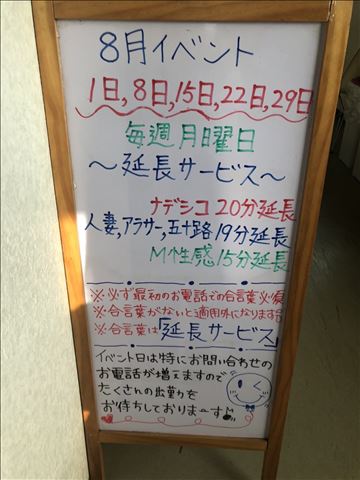 8月イベント
1日,8日,15日,22日,29日
毎週月曜日
～延長サービス～
ナデシコ20分延長
人妻,アラサー,五十路19分延長
M性感15分延長
※必ず最初のお電話での合言葉必須
※合言葉がないと適用外になります
※合言葉は「延長サービス」
イベント日は特にお問い合わせの
お電話が増えますので
たくさんの出勤を
お待ちしておりまーす